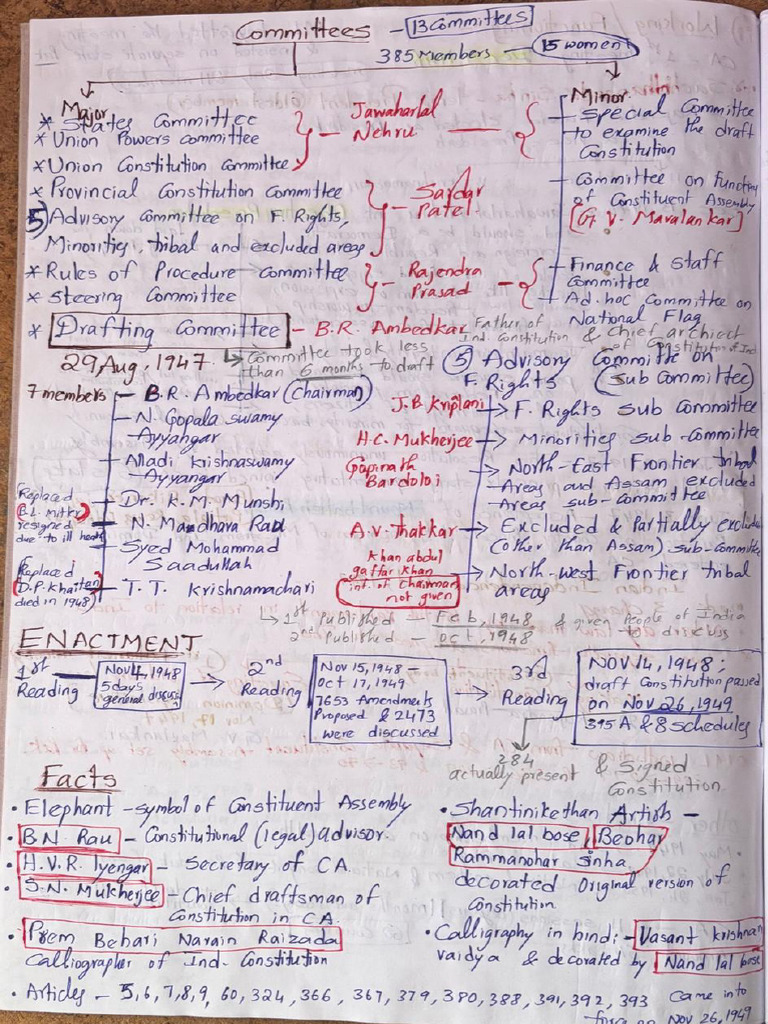 Committees - 13 Committees
385 Members - 15 women
Major
* States Committee
* Union Powers committee
* Union Constitution Committee
Jawaharlal
Nehru
* Provincial Constitution Committee
5 Advisory Committee on F. Rights,
Minorities, tribal and excluded areas
Sardar
Patel
* Rules of Procedure Committee
* Steering Committee
Rajendra
Prasad
Minor
- Special Committee
to examine the draft
Constitution
- Committee on Function
of Constituent Assembly
[G. V. Mavalankar]
- Finance & Staff
Committee
- Ad. hoc Committee on
National Flag
* Drafting Committee - B.R. Ambedkar
Father of
Ind. Constitution & Chief architect
of Constitution of Ind
29 Aug, 1947
Committee took less
than 6 months to draft
7 members - B.R. Ambedkar (Chairman)
- N. Gopala swamy
Ayyangar
- Alladi Krishnaswamy
Ayyangar
- Dr. K. M. Munshi
- N. Madhava Rau
Replaced
B.L. Mitter
resigned
due to ill health
- Syed Mohammad
Saadullah
- T. T. Krishnamachari
Replaced
D.P. Khaitan
died in 1948
5 Advisory Committe on
F. Rights (Sub Committee)
J.B. Kriplani → F. Rights Sub Committee
H.C. Mukherjee → Minorities sub-Committee
Gopinath
Bardoloi
→ North-East Frontier tribal
Areas and Assam excluded
Areas sub-Committee
A.V. Thakkar → Excluded & Partially exclud
(other than Assam) sub-Committe
Khan abdul
gaffar khan
int. of Chairman
not given
→ North-west Frontier tribal
areas
1st Published - Feb, 1948 & given People of India
2nd Published - Oct, 1948 to discuss
ENACTMENT
1st
Reading
Nov 4, 1948
5 days
general discuss
→ 2nd
Reading
Nov 15, 1948 -
Oct 17, 1949
7653 Amendments
Proposed & 2473
were discussed
→ 3rd
Reading
NOV 14, 1948:
draft Constitution passed
on Nov 26, 1949
395 A & 8 schedules
284
actually present & Signed
Constitution
Facts
• Elephant - symbol of Constituent Assembly
• B.N. Rau - Constitutional (legal) advisor.
• H.V.R. Iyengar - Secretary of CA.
• S.N. Mukherjee - Chief draftsman of
Constitution in CA.
• Prem Behari Narain Raizada
Calliographer of Ind. Constitution
• Shantinikethan Artists -
Nand lal bose, Beohar
Rammanohar Sinha
decorated Original version of
Constitution
• Calligraphy in hindi - Vasant krishnan
vaidya & decorated by Nand lal bose
• Articles - 5, 6, 7, 8, 9, 60, 324, 366, 367, 379, 380, 388, 391, 392, 393 came into
force on Nov 26, 1949